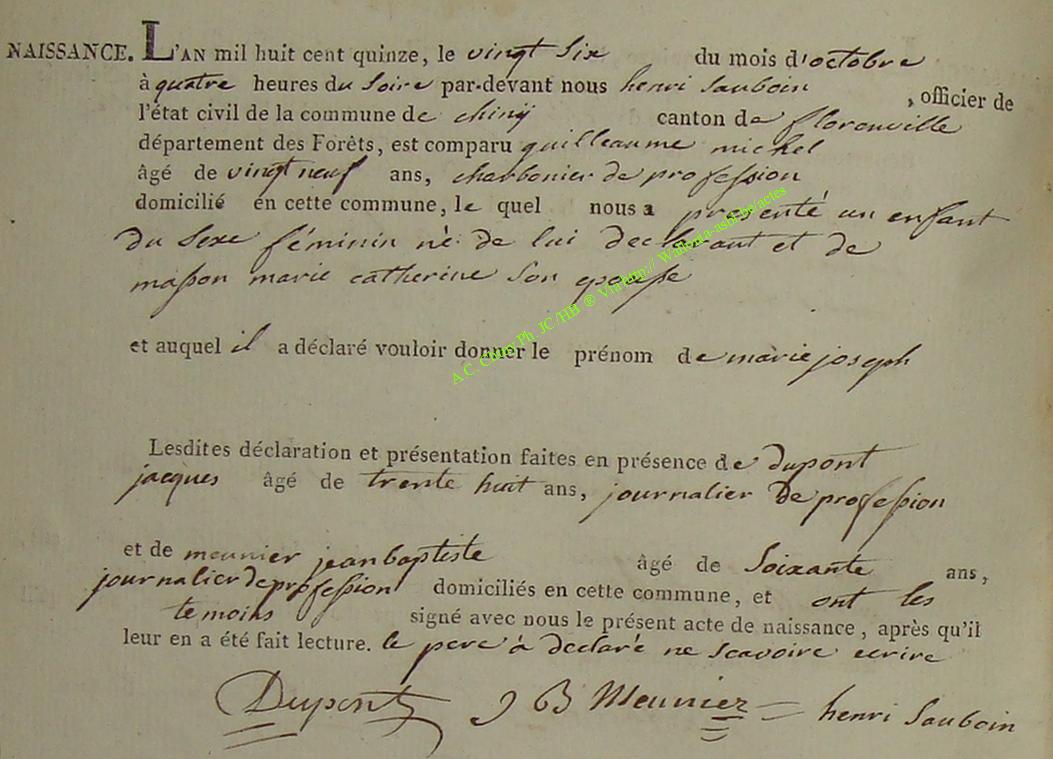 NAISSANCE. L'AN mil huit cent quinze, le vingt six du mois d'octobre
à quatre heures du soire par-devant nous henri sauboin , officier de
l'état civil de la commune de chiny canton de florenville
département des Forêts, est comparu guilleaume michel
âgé de vingt neuf ans, charbonier de profession
domicilié en cette commune, le quel nous a presenté un enfant
du sexe féminin né de lui declarant et de
masson marie catherine son epouse
et auquel il a déclaré vouloir donner le prénom de marie joseph
Lesdites déclaration et présentation faites en présence de dupont
jacques âgé de trente huit ans, journalier de profession
et de meunier jean baptiste âgé de soixante ans,
journalier de profession domiciliés en cette commune, et ont les
temoins signé avec nous le présent acte de naissance, après qu'il
leur en a été fait lecture. le pere à declaré ne scavoire ecrire
Dupont J B Meunier henri sauboin
A.C. Chiny Ph. JC/HB ® Via http://